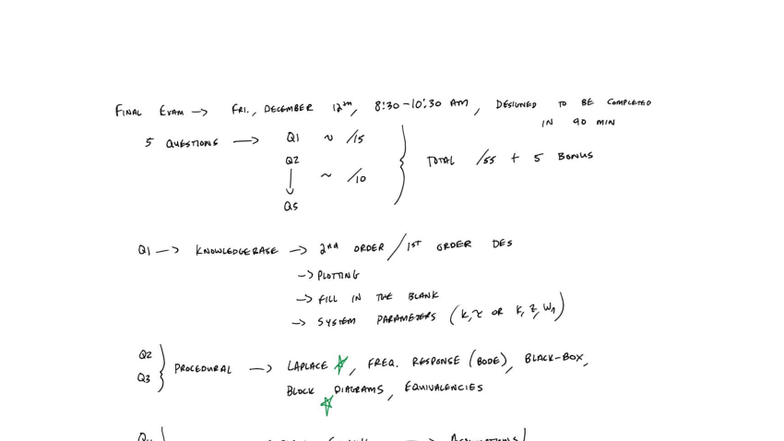 FINAL EXAM → FRI., DECEMBER 12TH, 8:30-10:30 AM, DESIGNED TO BE COMPLETED
IN 90 MIN
5 QUESTIONS → Q1 ~ /15
Q2
~ /10
Q5
TOTAL /55 + 5 BONUS
Q1 → KNOWLEDGEBASE → 2ND ORDER / 1ST ORDER DES
→ PLOTTING
→ FILL IN THE BLANK
→ SYSTEM PARAMETERS (K, τ OR K, ζ, Wn)
Q2
Q3
PROCEDURAL → LAPLACE ☆, FREQ. RESPONSE (BODE), BLACK-BOX,
BLOCK DIAGRAMS, EQUIVALENCIES
☆